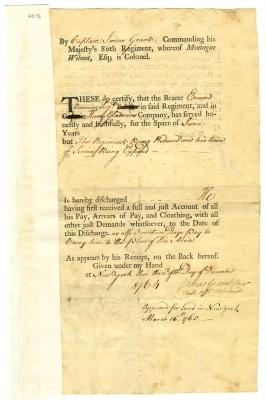 By Captain James Grant, Commanding his
Majesty's 80th Regiment, whereof Montague
Wilmot, Esq; is Colonel.
THESE do certify, that the Bearer Edmond
in said Regiment, and in
Company, has served ho-
nestly and faithfully, for the Space of
Years
but The Regiment Being Reduced and his time
of Service Being Expired
Is hereby discharged He
having first received a full and just Account of all
his Pay, Arrears of Pay, and Cloathing, with all
other just Demands whatsoever, to the Date of
this Discharge. as also fourteen Days Pay to
Carry him to the place of his Abode
As appears by his Receipt, on the Back hereof.
Given under my Hand
at New York this the Day of December
1764
Appeared for Land in New York
March 16th 1765